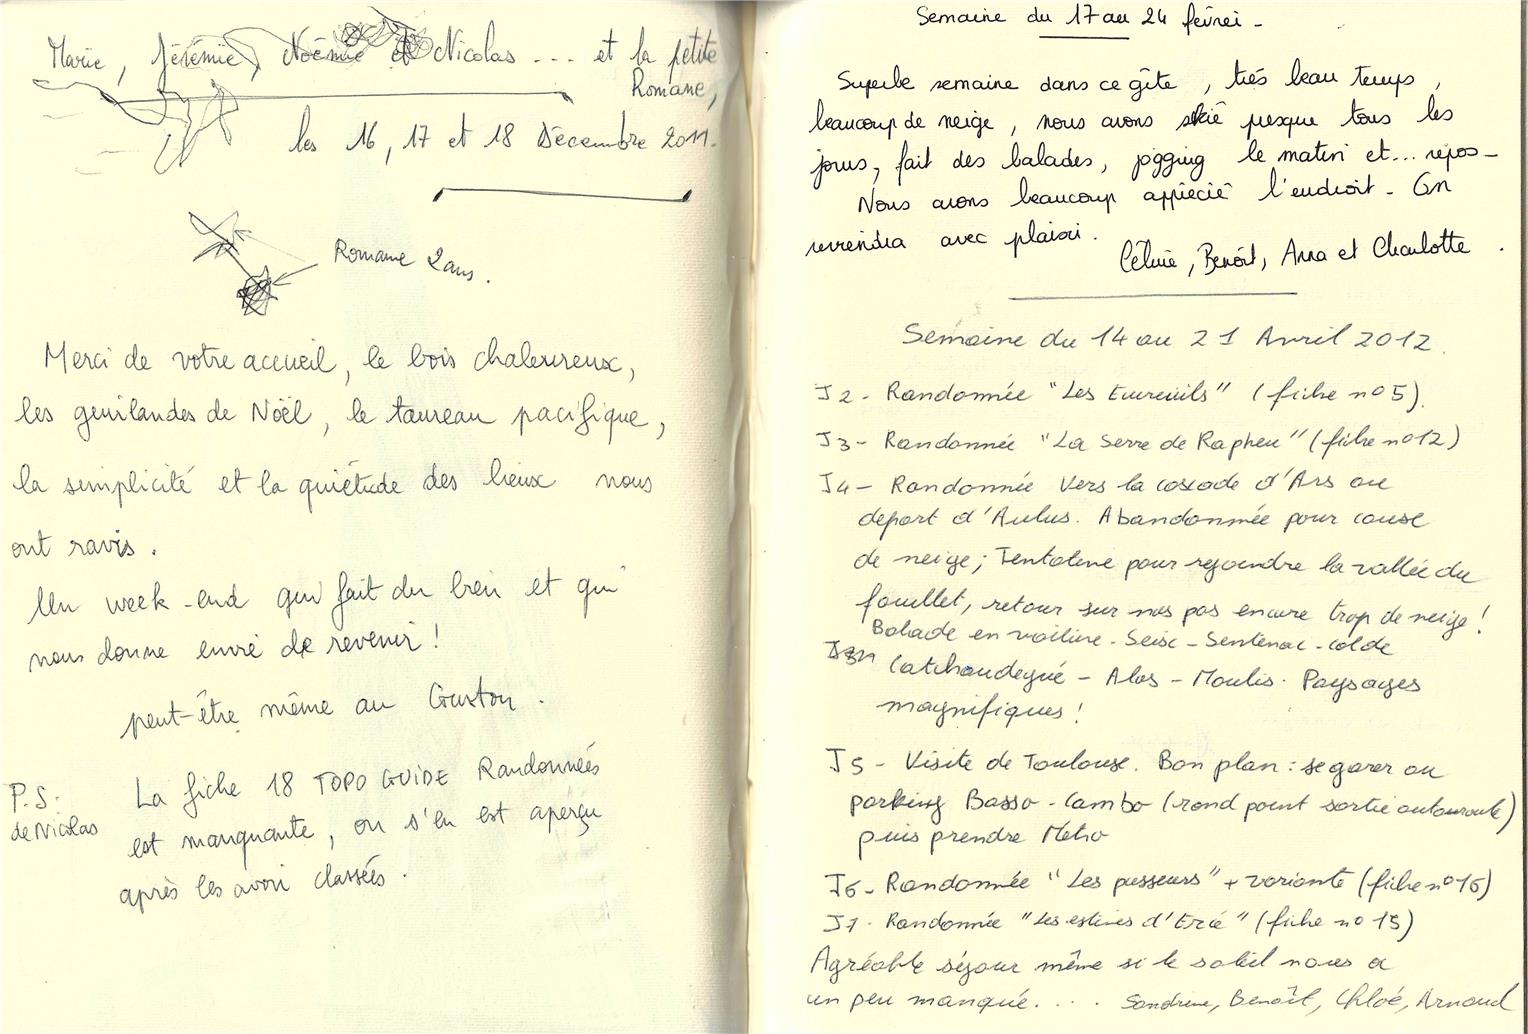 Marie, Jérémie, Noémie et Nicolas ... et la petite
Romane,
les 16, 17 et 18 Décembre 2011.
Romane 2 ans.
Merci de votre accueil, le bois chaleureux,
les guirlandes de Noël, le taureau pacifique,
la simplicité et la quiétude des lieux nous
ont ravis.
Un week-end qui fait du bien et qui
nous donne envie de revenir !
peut-être même au
P.S:
de Nicolas
La fiche 18 TOPO GUIDE Randonnées
est manquante, on s'en est aperçu
après les avoir classées.
Semaine du 17 au 24 février -
Superbe semaine dans ce gîte, très beau temps,
beaucoup de neige, nous avons skié presque tous les
jours, fait des balades, jogging le matin et... repos -
Nous avons beaucoup apprécié l'endroit - On
reviendra avec plaisir.
Céline, Benoît, Anna et Charlotte.
Semaine du 14 au 21 Avril 2012.
J2 - Randonnée "Les Ecureuils" (fiche n°5).
J3 - Randonnée "La Serre de Rapheu" (fiche n°12)
J4 - Randonnée vers la cascade d'Ars au
départ d'Aulus. Abandonnée pour cause
de neige; Tentative pour rejoindre la vallée du
fouillet, retour sur nos pas encore trop de neige !
Balade en voiture - Seix - Sentenac - col de
Catchaudegué - Alos - Moulis. Paysages
magnifiques !
J5 - Visite de Toulouse. Bon plan : se garer au
parking Basso-Cambo (rond point sortie autoroute)
puis prendre Metro
J6 - Randonnée "Les passeurs" + variante (fiche n°16)
J7 - Randonnée "Les estives d'Ercé" (fiche n°15)
Agréable séjour même si le soleil nous a
un peu manqué. . . . Sandrine, Benoît, Chloé, Arnaud